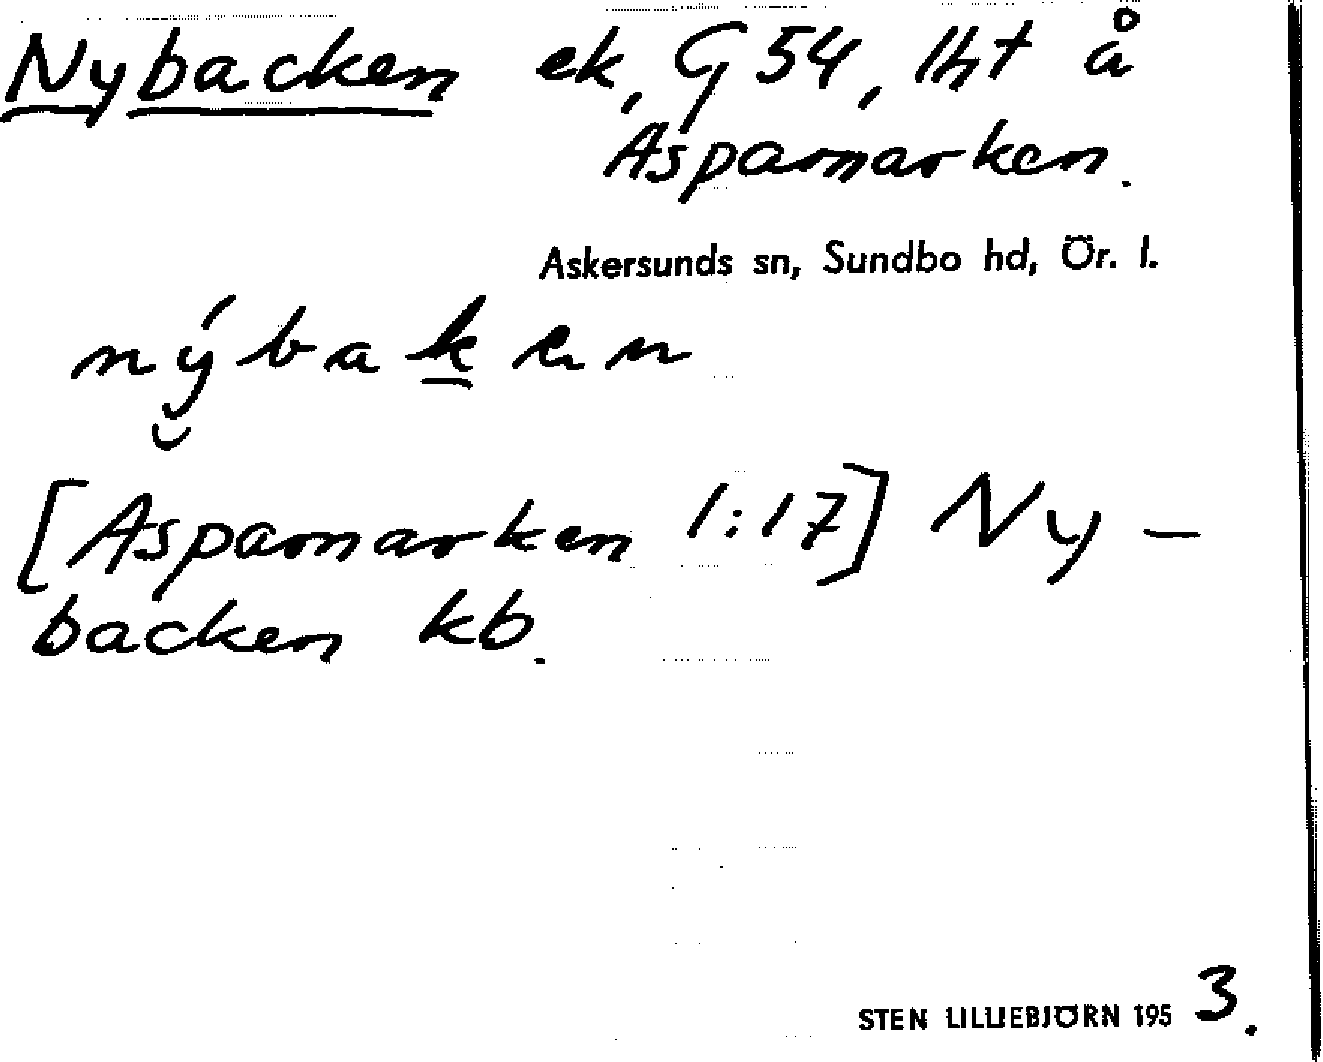 Nybacken ek, G 54, lht å
Aspamarken.
Askersunds sn, Sundbo hd, Ör. l.
nýbaken
[Aspamarken 1:17] Ny-
backen kb.
STEN LILLIEBJÖRN 1953.